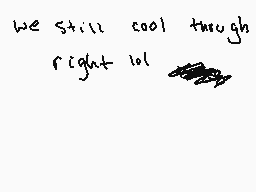 we still cool though
right lol